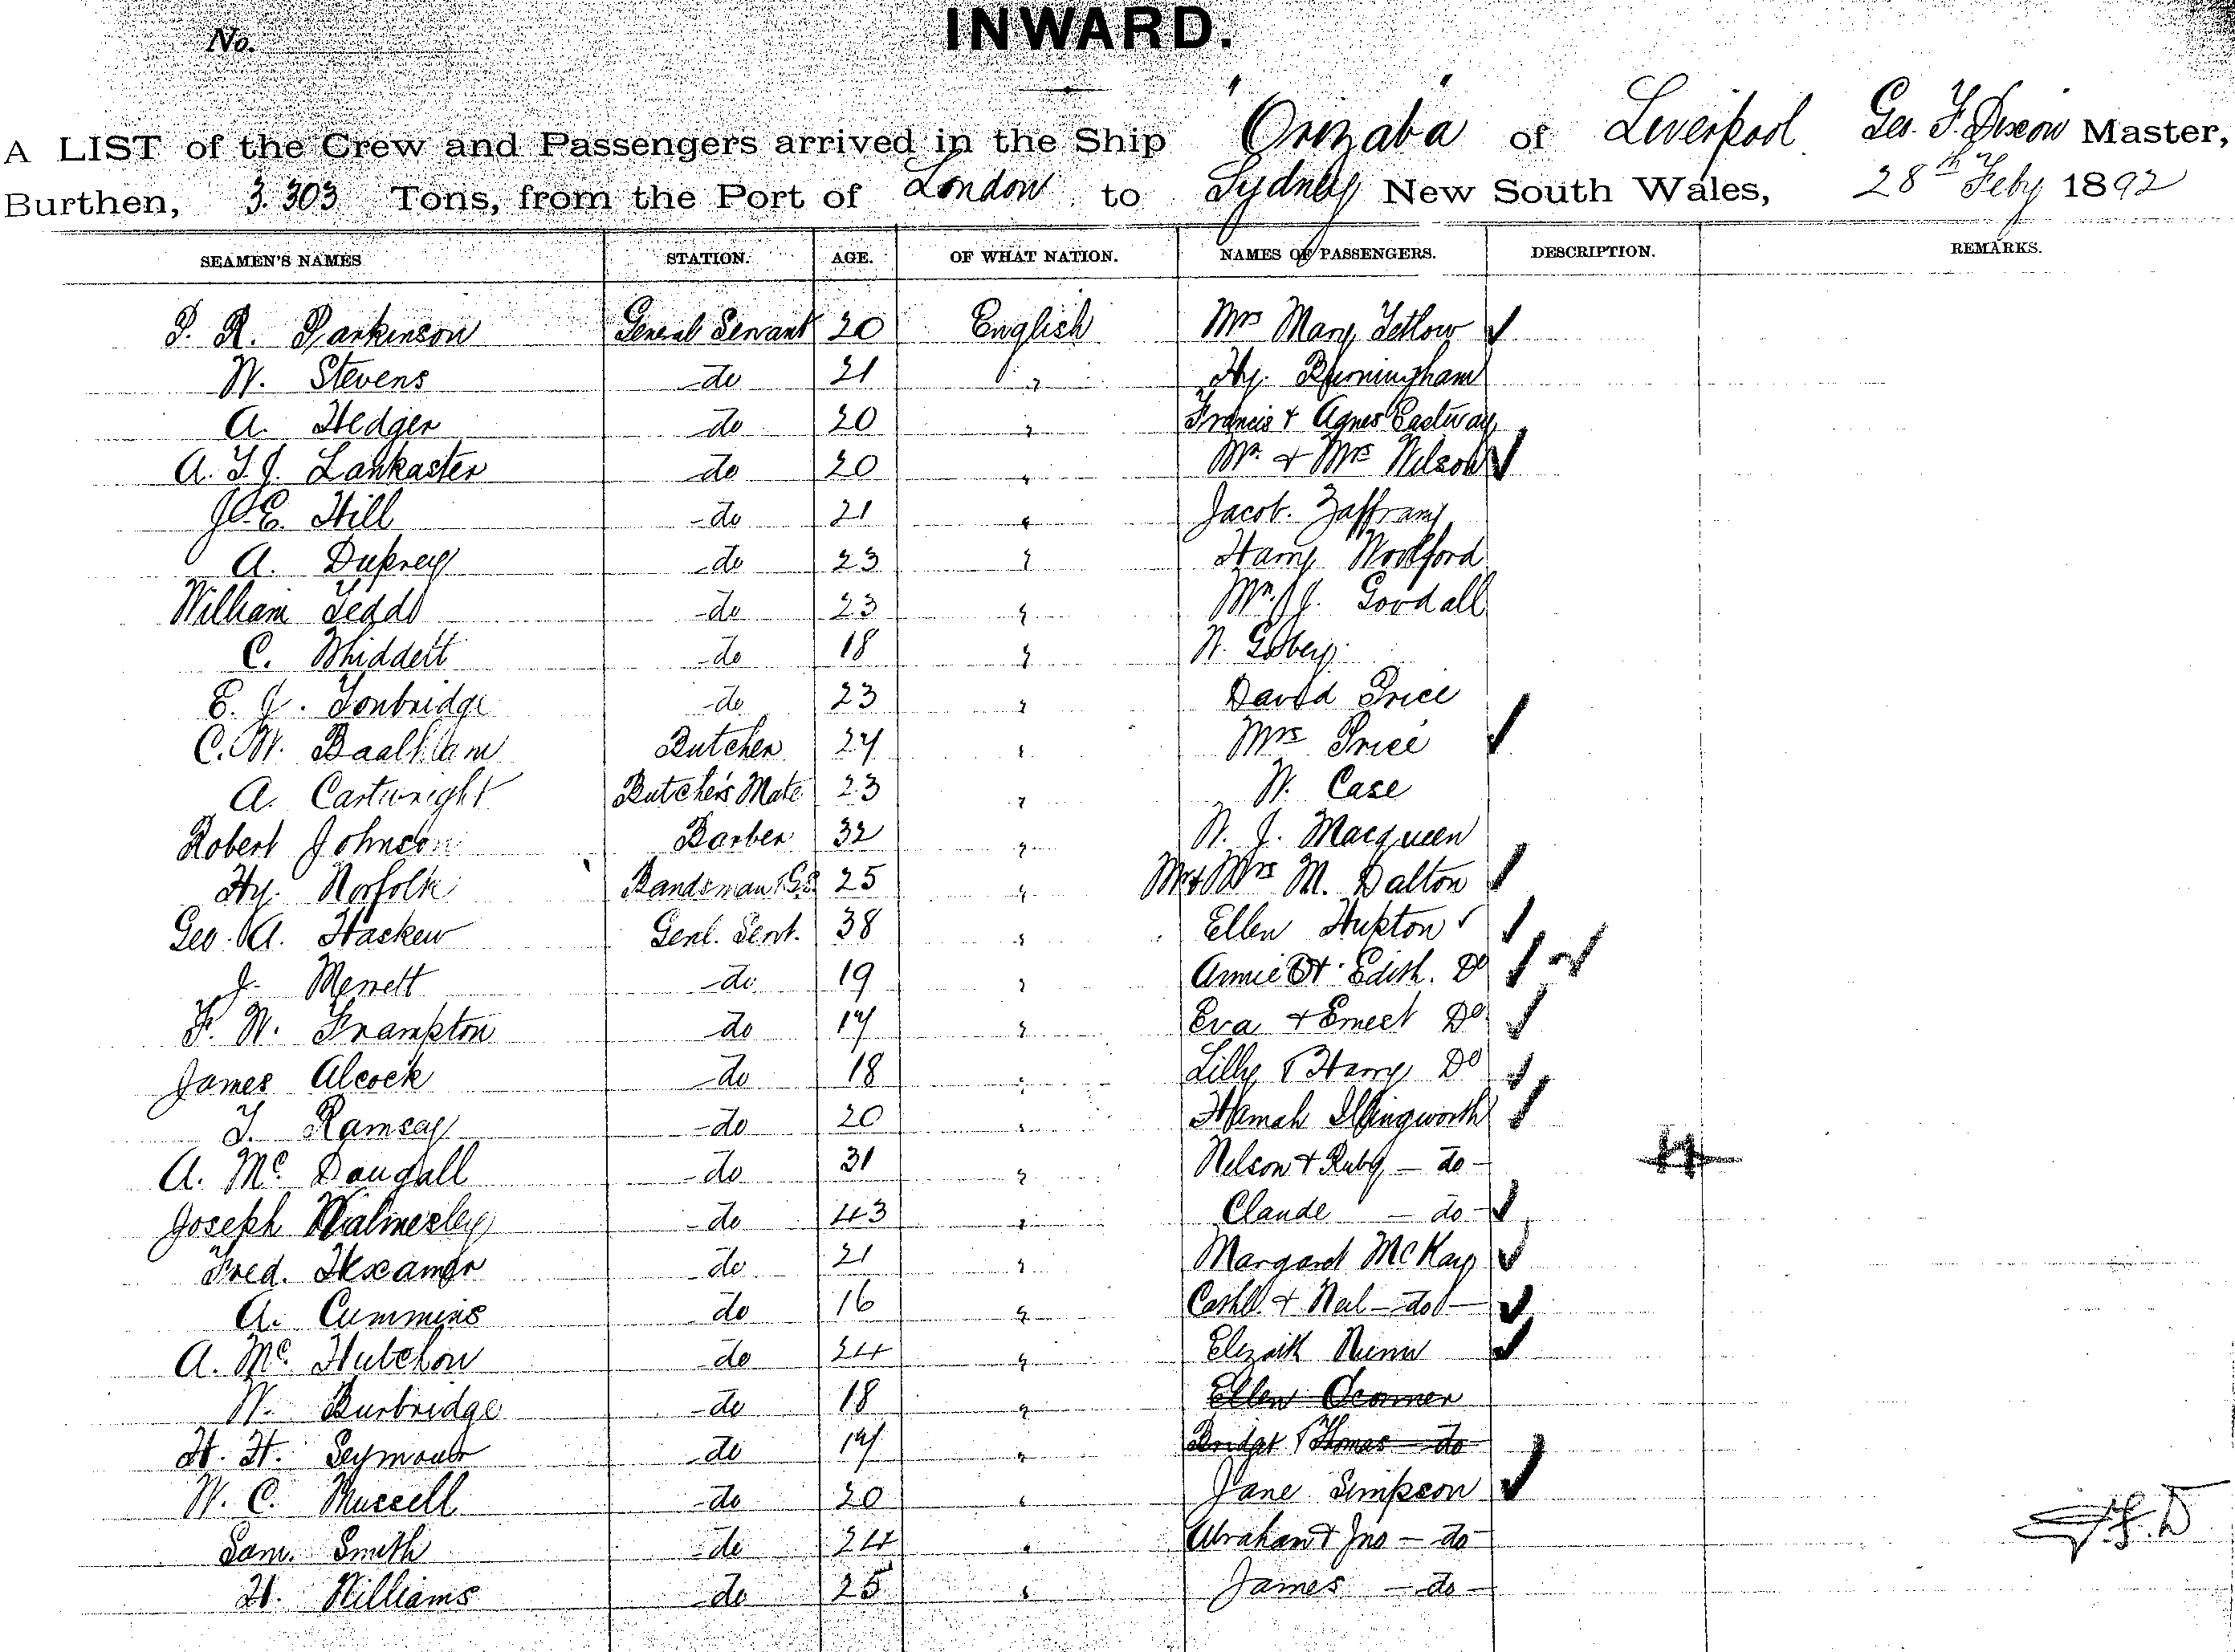 No.
INWARD.
A LIST of the Crew and Passengers arrived in the Ship "Orizaba" of Liverpool Geo. F. Dixon Master,
Burthen, 3.303 Tons, from the Port of London to Sydney New South Wales, 28th Feby 1892
SEAMEN'S NAMES STATION. AGE. OF WHAT NATION. NAMES OF PASSENGERS. DESCRIPTION. REMARKS.
R. Parkinson General Servant 20 English Mrs Mary Tetlow
W. Stevens do 21 " Hy. Burningham
A. Hedger do 20 " Francis & Agnes Eastway
A. T. J. Lankaster do 20 " Mr. & Mrs Wilson
J. E. Hill do 21 " Jacob. Zaffrany
A. Duprey do 23 " Harry Woolford
William Tedd do 23 " Mr. J. Goodall
C. Whiddett do 18 " W.
E. J. Tonbridge do 23 " David Price
C. W. Baalham Butcher 27 " Mrs Price
A. Cartwright Butcher's Mate 23 " W. Case
Robert Johnson Barber 32 " W. J. Macqueen
Hy. Norfolk Bandsman & GS 25 " Mr & Mrs M. Dalton
Geo. A. Haskew Genl. Servt. 38 " Ellen Hupton
J. Merrett do 19 " Annie & Edith. Do
F. W. Frampton do 17 " Eva & Ernest Do
James Alcock do 18 " Lilly & Harry Do
T. Ramsay do 20 " Hannah Illingworth
A. Mc Dougall do 31 " Nelson & Ruby - do -
Joseph Walmesley do 43 " Claude - do -
Fred. do 21 " Margaret McKay
A. Cummins do 16 " & Neil - do -
A. Mc Hutchon do 24 " Nunn
W. Burbridge do 18 " Ellen Oconner
H. H. Seymour do 17 " Bridget & Thomas - do
W. C. Mussell do 20 " Jane Simpson
Sam. Smith do 24 " Abraham & Jno - do -
H. Williams do 25 " James - do -